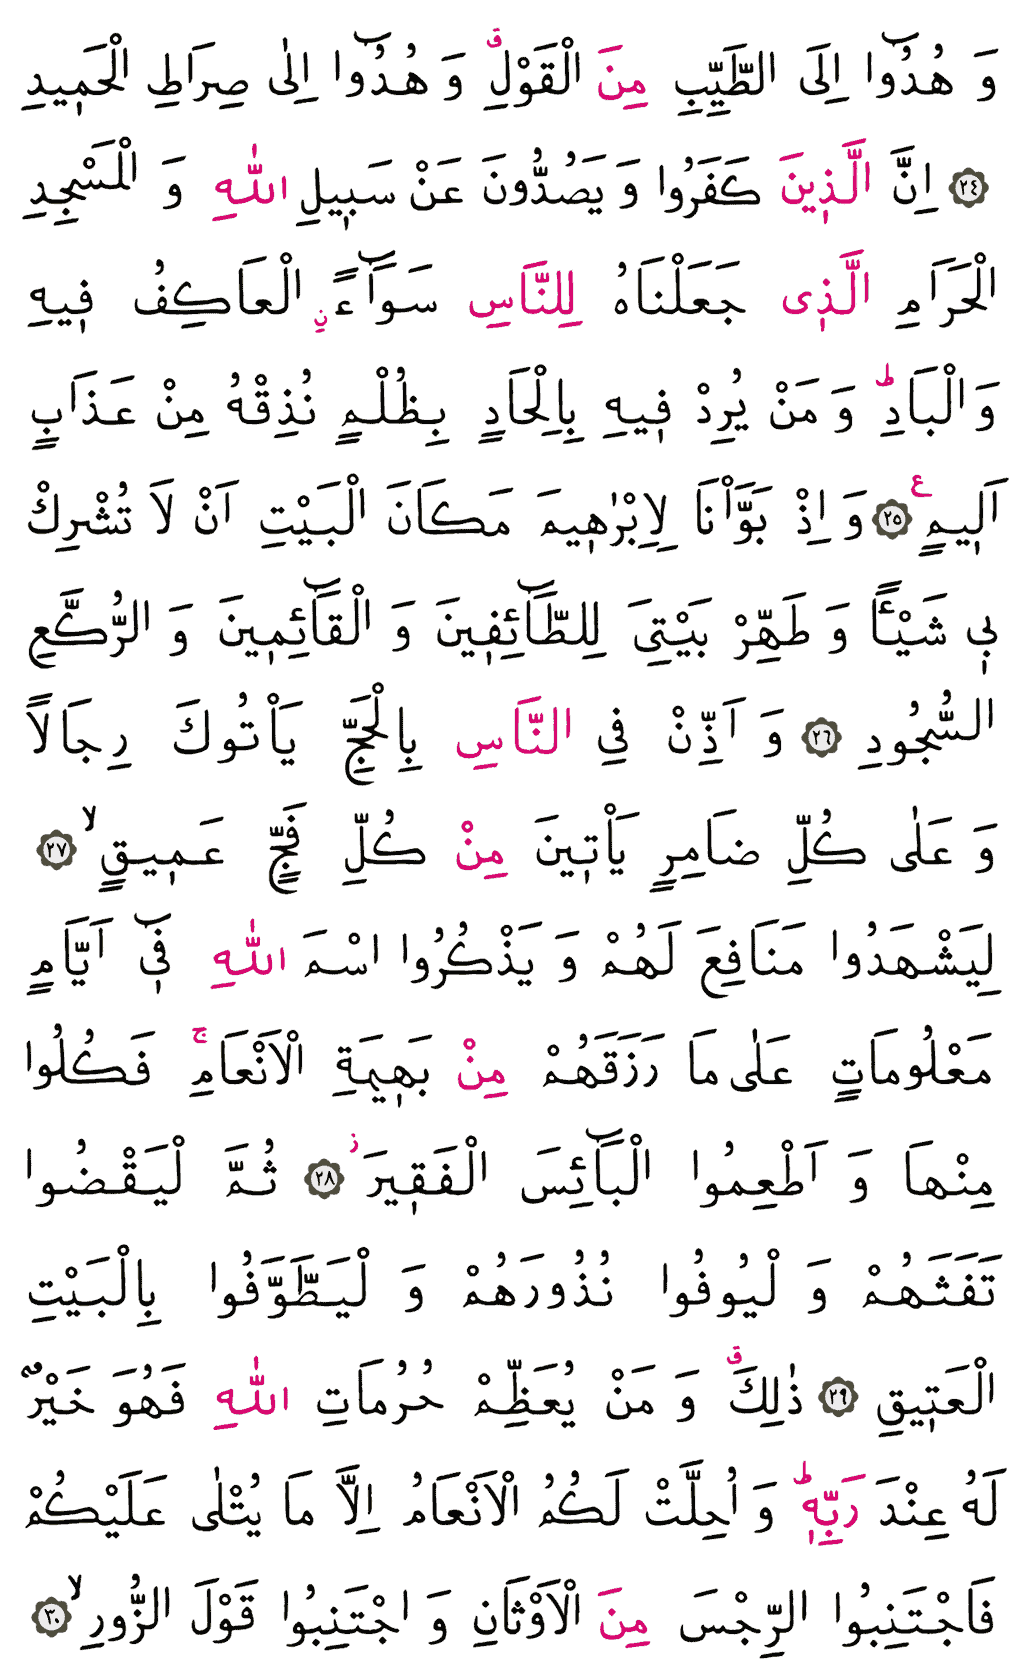 وَ هُدُٓوا اِلَى الطَّيِّبِ مِنَ الْقَوْلِۗ وَ هُدُٓوا اِلٰى صِرَاطِ الْحَم۪يدِ
﴿٢٤﴾ اِنَّ الَّذ۪ينَ كَفَرُوا وَ يَصُدُّونَ عَنْ سَب۪يلِ اللّٰهِ وَ الْمَسْجِدِ
الْحَرَامِ الَّذ۪ى جَعَلْنَاهُ لِلنَّاسِ سَوَٓاءًۨ الْعَاكِفُ ف۪يهِ
وَ الْبَادِؕ وَ مَنْ يُرِدْ ف۪يهِ بِاِلْحَادٍ بِظُلْمٍ نُذِقْهُ مِنْ عَذَابٍ
اَل۪يمٍ ع ﴿٢٥﴾ وَ اِذْ بَوَّاْنَا لِاِبْرٰه۪يمَ مَكَانَ الْبَيْتِ اَنْ لَا تُشْرِكْ
ب۪ى شَيْـًٔا وَ طَهِّرْ بَيْتِىَ لِلطَّٓائِف۪ينَ وَ الْقَٓائِم۪ينَ وَ الرُّكَّعِ
السُّجُودِ ﴿٢٦﴾ وَ اَذِّنْ فِى النَّاسِ بِالْحَجِّ يَاْتُوكَ رِجَالًا
وَ عَلٰى كُلِّ ضَامِرٍ يَاْت۪ينَ مِنْ كُلِّ فَجٍّ عَم۪يقٍۙ ﴿٢٧﴾
لِيَشْهَدُوا مَنَافِعَ لَهُمْ وَ يَذْكُرُوا اسْمَ اللّٰهِ ف۪ٓى اَيَّامٍ
مَعْلُومَاتٍ عَلٰى مَا رَزَقَهُمْ مِنْ بَه۪يمَةِ الْاَنْعَامِۚ فَكُلُوا
مِنْهَا وَ اَطْعِمُوا الْبَٓائِسَ الْفَق۪يرَؗ ﴿٢٨﴾ ثُمَّ لْيَقْضُوا
تَفَثَهُمْ وَ لْيُوفُوا نُذُورَهُمْ وَ لْيَطَّوَّفُوا بِالْبَيْتِ
الْعَت۪يقِ ﴿٢٩﴾ ذٰلِكَۗ وَ مَنْ يُعَظِّمْ حُرُمَاتِ اللّٰهِ فَهُوَ خَيْرٌ
لَهُ عِنْدَ رَبِّه۪ؕ وَ اُحِلَّتْ لَكُمُ الْاَنْعَامُ اِلَّا مَا يُتْلٰى عَلَيْكُمْ
فَاجْتَنِبُوا الرِّجْسَ مِنَ الْاَوْثَانِ وَ اجْتَنِبُوا قَوْلَ الزُّورِۙ ﴿٣٠﴾